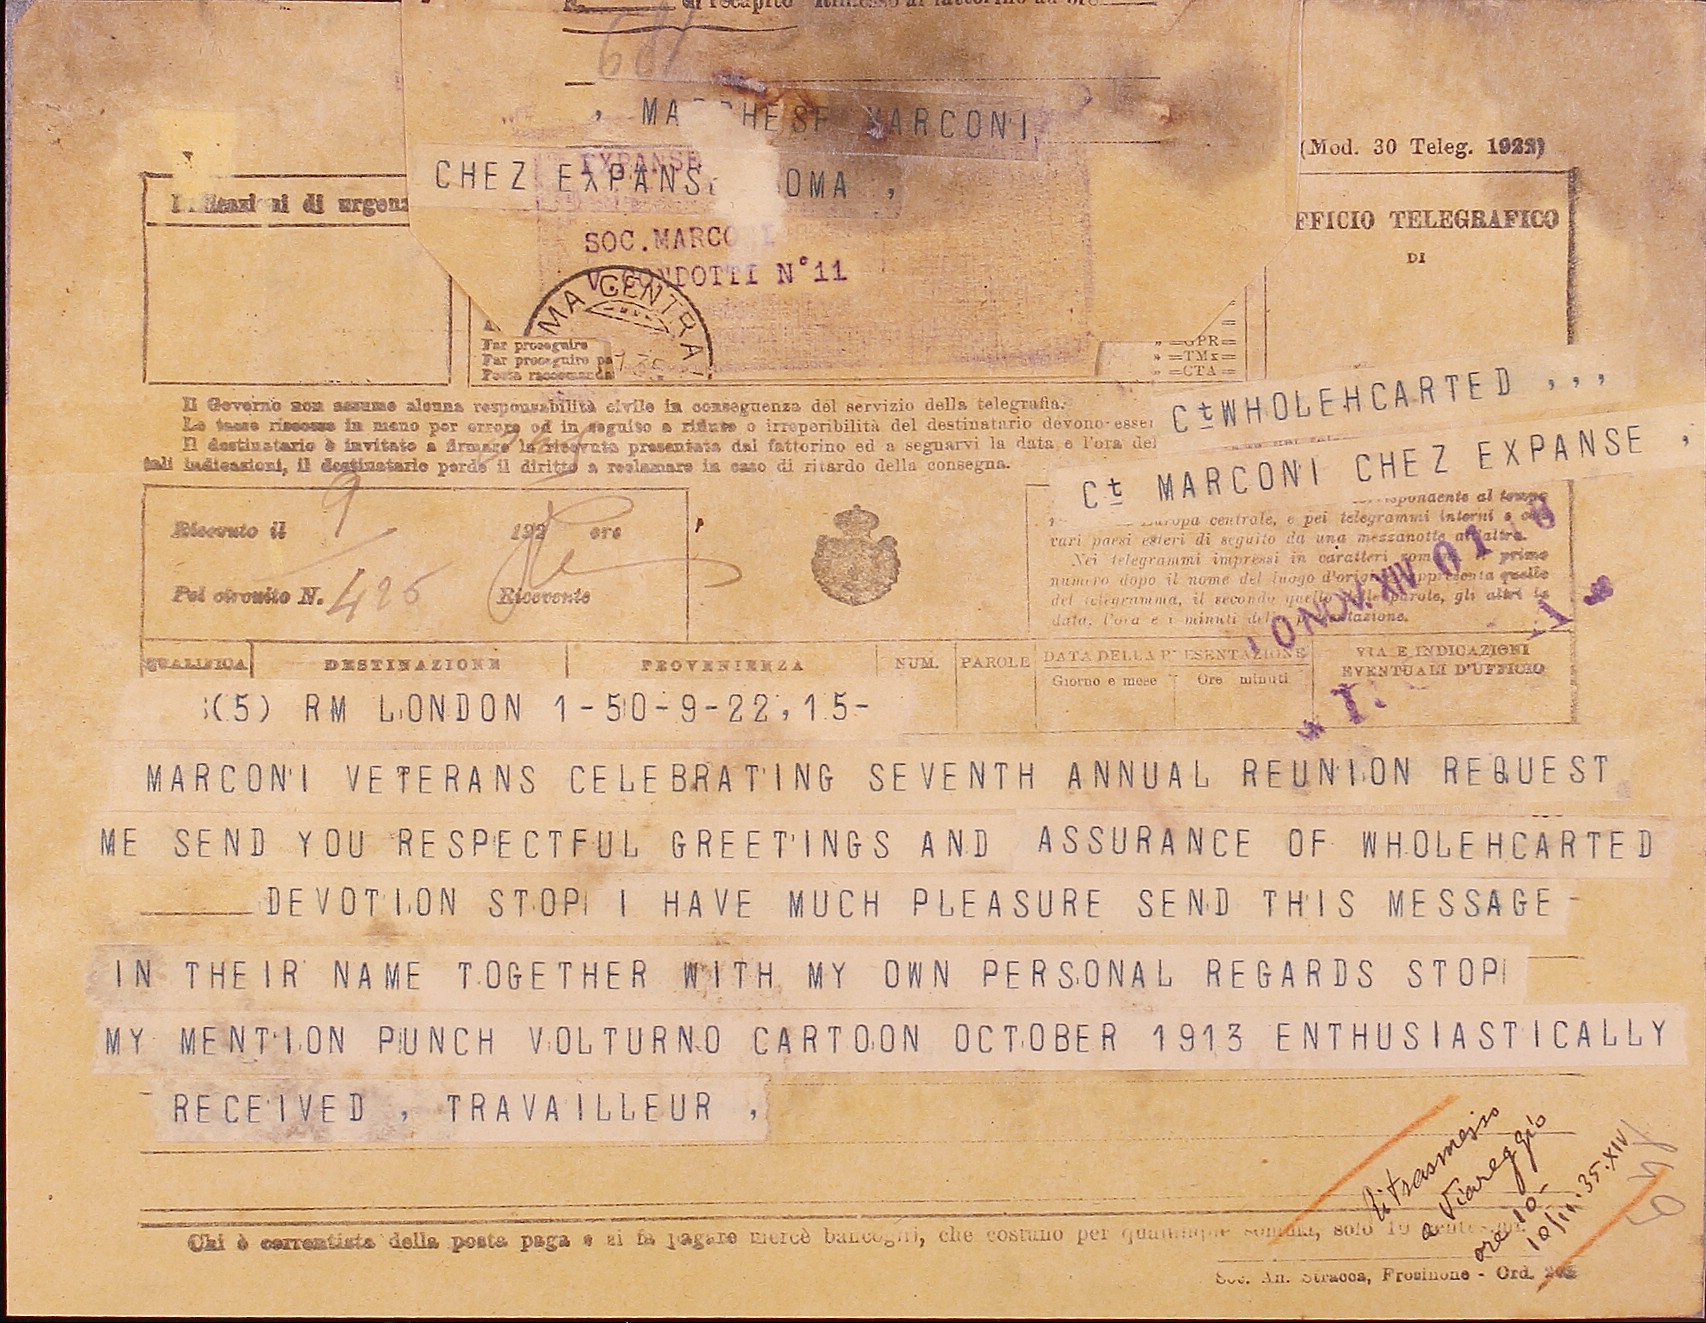 di recapito Rimesso al fattorino ad ore
681
, MARCHESE MARCONI
CHEZ EXPANSE ROMA ,
EXPANSE
SOC.MARCONI
V. CONDOTTI N°11
MA CENTRA
(Mod. 30 Teleg. 1922)
Indicazioni di urgenza
UFFICIO TELEGRAFICO
DI
Far proseguire
Far proseguire
Posta raccomandata
=GPR=
» =TMx=
» =CTA=
Il Governo non assume alcuna responsabilità civile in conseguenza del servizio della telegrafia.
Le tasse riscosse in meno per errore od in seguito a rifiuto o irreperibilità del destinatario devono esser
Il destinatario è invitato a firmare la ricevuta presentata dal fattorino ed a segnarvi la data e l'ora del
tali indicazioni, il destinatario perde il diritto a reclamare in caso di ritardo della consegna.
Ct WHOLEHCARTED ,,,
Ct MARCONI CHEZ EXPANSE ,
Ricevuto il 9 192 ore
Pel circuito N. 426 Ricevente
corrispondente al tempo
Europa centrale, e pei telegrammi interni e con
vari paesi esteri di seguito da una mezzanotte all'altra.
Nei telegrammi impressi in caratteri romani il primo
numero dopo il nome del luogo d'origine rappresenta quello
del telegramma, il secondo quello delle parole, gli altri la
data, l'ora e i minuti della presentazione.
10 NOV. XIV 01
QUALIFICA DESTINAZIONE PROVENIENZA NUM. PAROLE DATA DELLA PRESENTAZIONE VIA E INDICAZIONI
Giorno e mese Ore minuti EVENTUALI D'UFFICIO
(5) RM LONDON 1-50-9-22,15-
MARCONI VETERANS CELEBRATING SEVENTH ANNUAL REUNION REQUEST
ME SEND YOU RESPECTFUL GREETINGS AND ASSURANCE OF WHOLEHCARTED
DEVOTION STOP I HAVE MUCH PLEASURE SEND THIS MESSAGE
IN THEIR NAME TOGETHER WITH MY OWN PERSONAL REGARDS STOP
MY MENTION PUNCH VOLTURNO CARTOON OCTOBER 1913 ENTHUSIASTICALLY
RECEIVED , TRAVAILLEUR ,
Ritrasmesso
a Viareggio
ore 10-
10/11.35.XIV
Chi è correntista della posta paga e si fa pagare mercè bancogiri, che costano per qualunque somma, solo 10 centesimi.
Soc. An. Stracca, Frosinone - Ord.